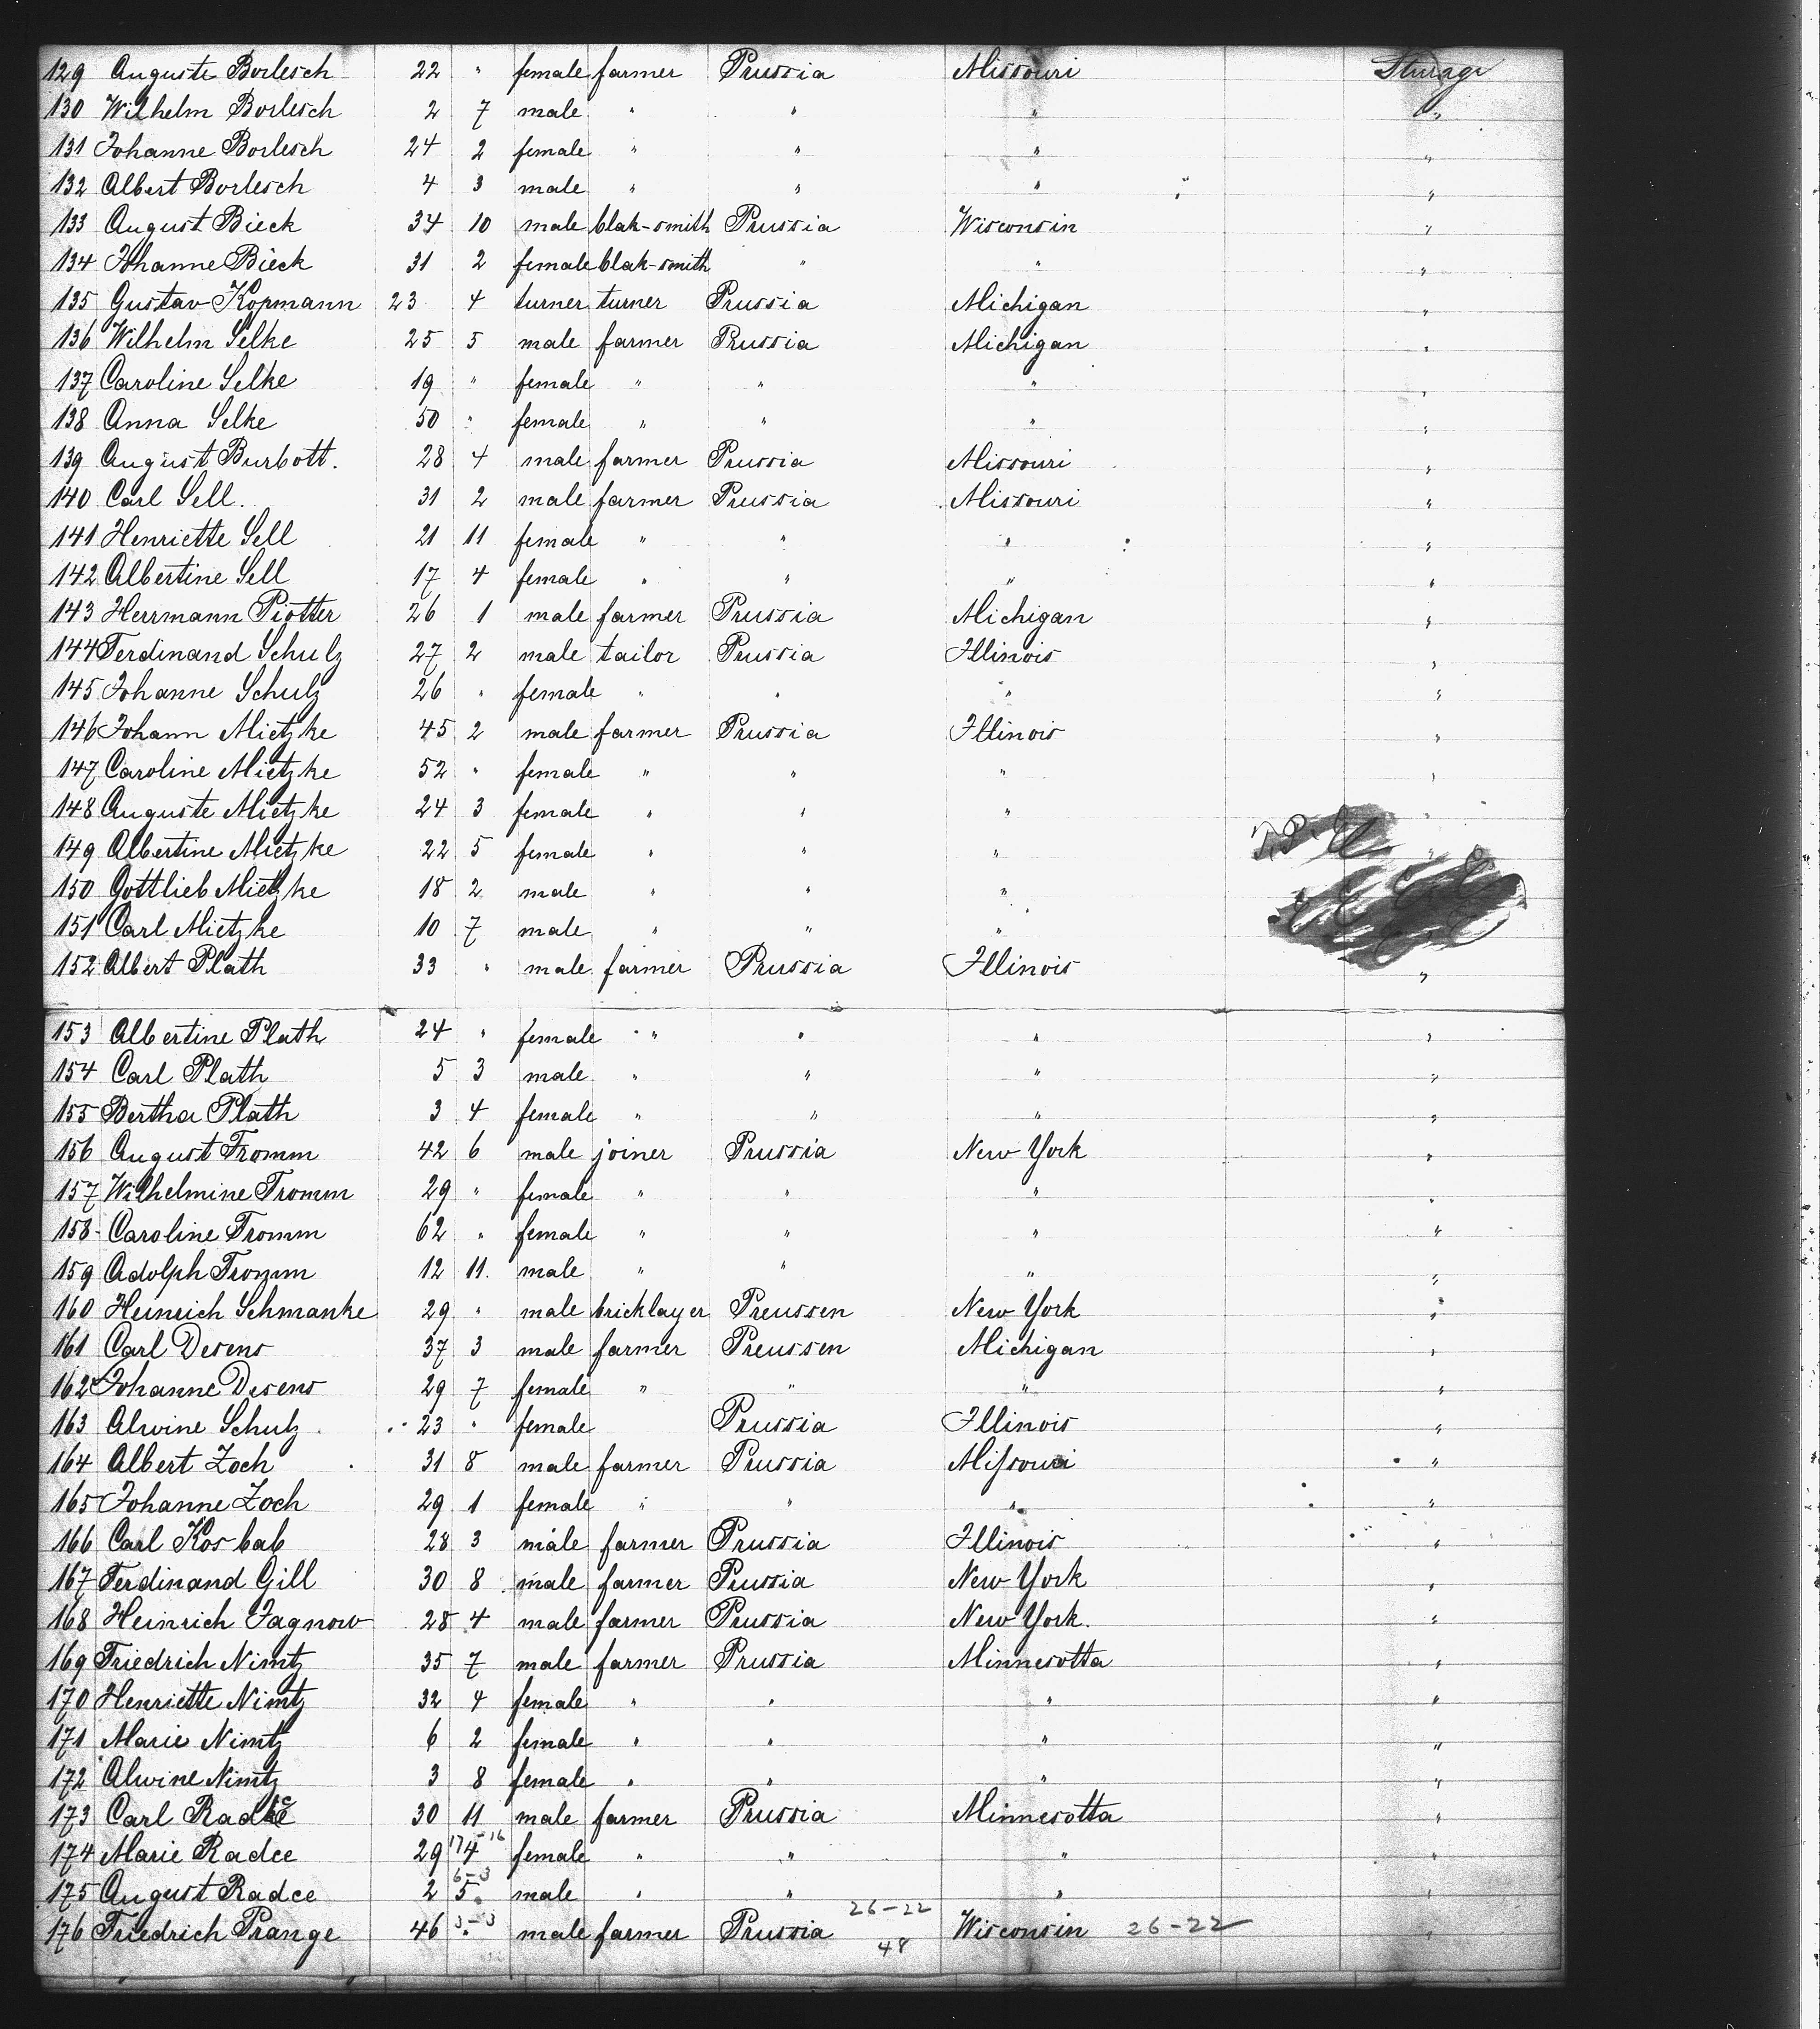 129 Auguste Borlesch 22 " female farmer Prussia Missouri Sturage
130 Wilhelm Borlesch 2 7 male " " " "
131 Johanne Borlesch 24 2 female " " " "
132 Albert Borlesch 4 3 male " " " "
133 August Bieck 34 10 male blak-smith Prussia Wisconsin "
134 Johanne Bieck 31 2 female blak-smith " " "
135 Gustav Kopmann 23 4 turner turner Prussia Michigan "
136 Wilhelm Selke 25 5 male farmer Prussia Michigan "
137 Caroline Selke 19 " female " " " "
138 Anna Selke 50 " female " " " "
139 August Burbott. 28 4 male farmer Prussia Missouri "
140 Carl Sell. 31 2 male farmer Prussia Missouri "
141 Henriette Sell 21 11 female " " " "
142 Albertine Sell 17 4 female " " " "
143 Herrmann Piotter 26 1 male farmer Prussia Michigan "
144 Ferdinand Schulz 27 2 male tailor Prussia Illinois "
145 Johanne Schulz 26 " female " " " "
146 Johann Mietzke 45 2 male farmer Prussia Illinois "
147 Caroline Mietzke 52 " female " " " "
148 Auguste Mietzke 24 3 female " " " "
149 Albertine Mietzke 22 5 female " " " "
150 Gottlieb Mietzke 18 2 male " " "
151 Carl Mietzke 10 7 male " " "
152 Albert Plath 33 " male farmer Prussia Illinois "
153 Albertine Plath 24 " female " " " "
154 Carl Plath 5 3 male " " " "
155 Bertha Plath 3 4 female " " " "
156 August Fromm 42 6 male joiner Prussia New York "
157 Wilhelmine Fromm 29 " female " " " "
158 Caroline Fromm 62 " female " " " "
159 Adolph Fromm 12 11. male " " " "
160 Heinrich Schmanke 29 " male bricklayer Preussen New York "
161 Carl Desens 37 3 male farmer Preussen Michigan "
162 Johanne Desens 29 7 female " " " "
163 Alwine Schulz 23 " female Prussia Illinois "
164 Albert Zoch 31 8 male farmer Prussia Missouri "
165 Johanne Zoch 29 1 female " " " "
166 Carl Kosbab 28 3 male farmer Prussia Illinois "
167 Ferdinand Gill 30 8 male farmer Prussia New York "
168 Heinrich Jagnow 28 4 male farmer Prussia New York. "
169 Friedrich Nimtz 35 7 male farmer Prussia Minnesotta "
170 Henriette Nimtz 32 4 female " " " "
171 Marie Nimtz 6 2 female " " " "
172 Alwine Nimtz 3 8 female " " " "
173 Carl Radke 30 11 male farmer Prussia Minnesotta "
174 Marie Radee 29 4 female " " " "
175 August Radee 2 5 male " " " "
26-22
176 Friedrich Prange 46 " male farmer Prussia Wisconsin 26-22 "
48